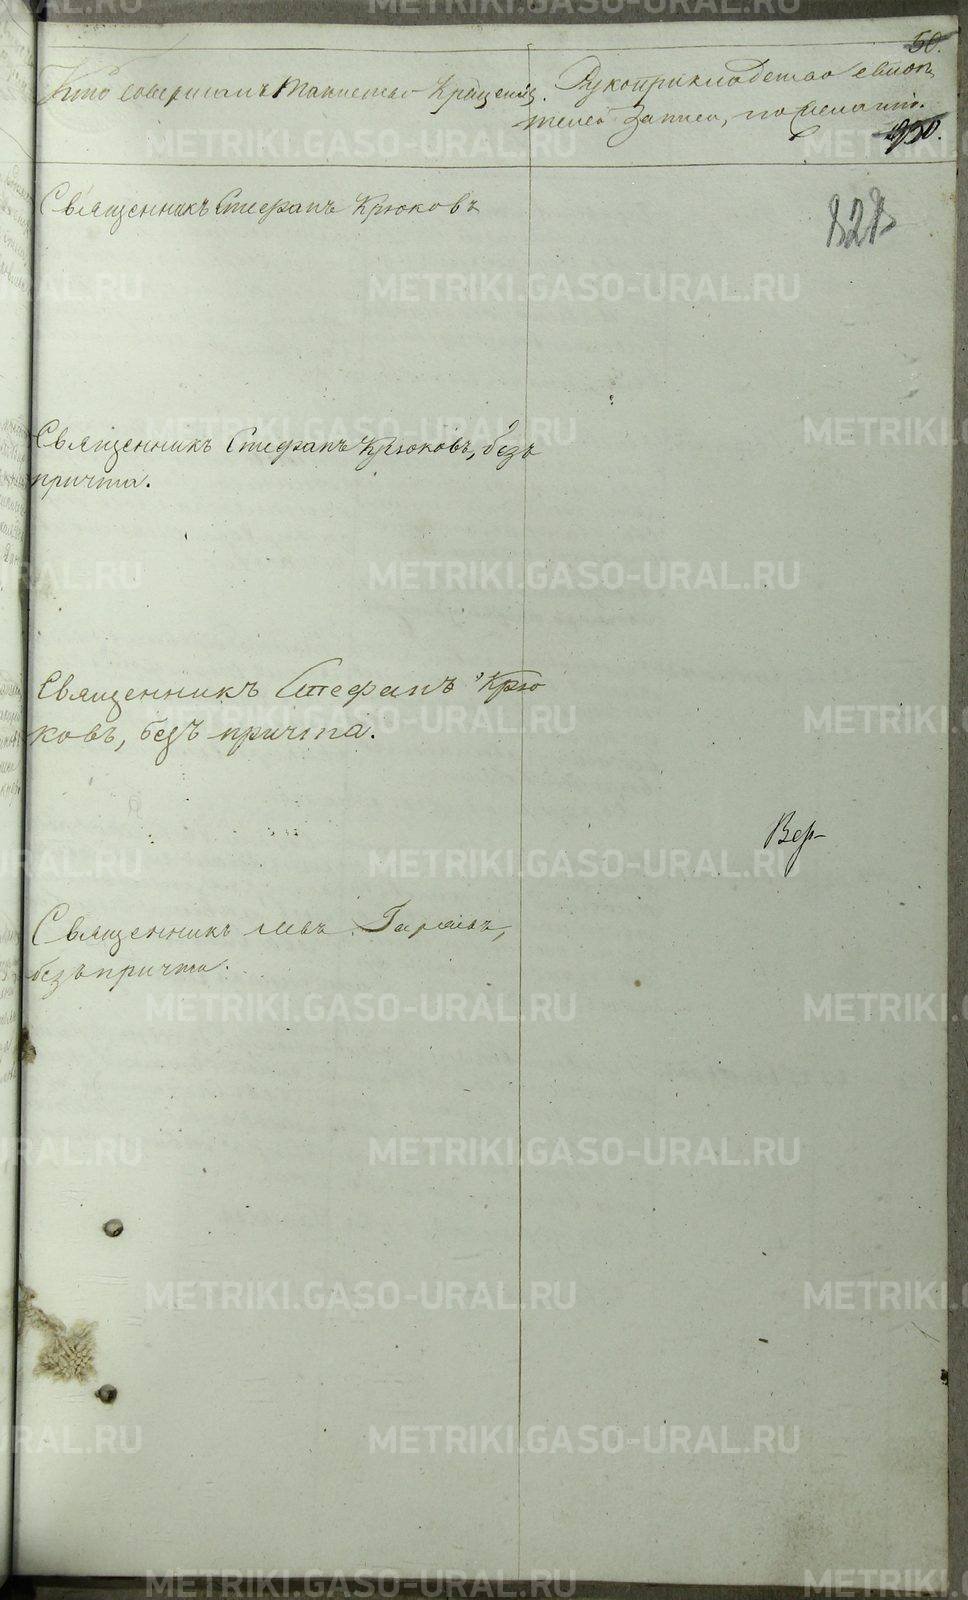 50.
Кто совершалъ таинство Крещенія.
Рукоприкладство свидѣ-
телей записи, по желанію.
Священникъ Стефанъ Крюковъ
Священникъ Стефанъ Крюковъ, безъ
причта.
Священникъ Стефанъ Крю
ковъ, безъ причта.
Вер-
Священникъ
безъ причта.
METRIKI.GASO-URAL.RU